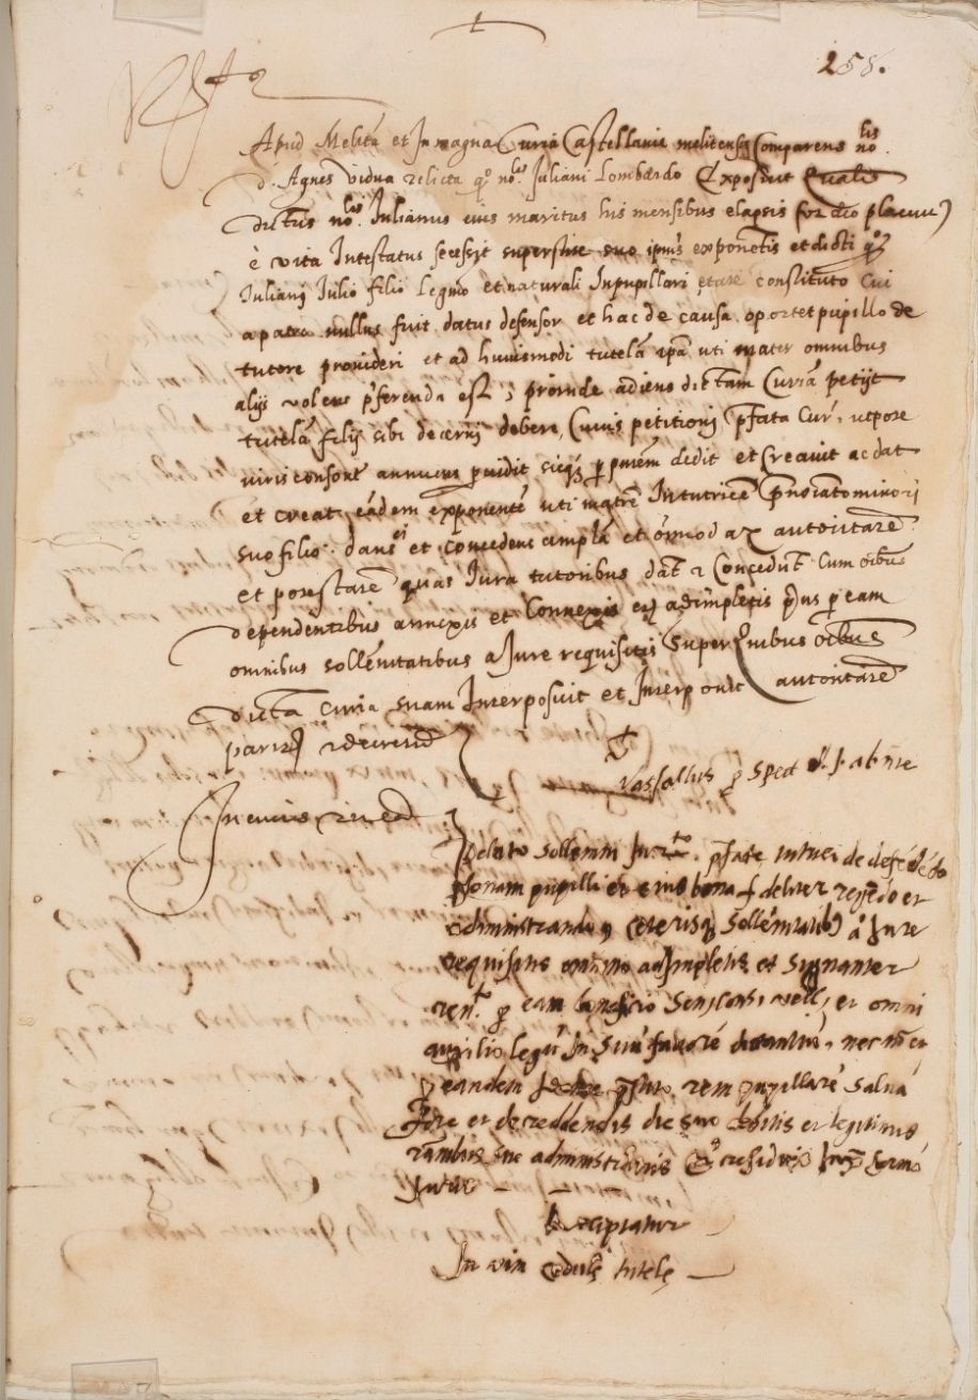 258.
Apud Melitã et In magna Curia Castellanie melitensis Comparens nolis
d. Agnes vidua relicta qo nolis Juliani Lombardo Exposuit Qualis
dictus nolis. Julianus eius maritus his mensibus elapsis sor deo placuit
è vita Intestatus secessit superstite suo ipius exponẽtis et dicti qo
Iuliani Iulio filio legmo et naturali In pupillari etate constituto Cui
a patre nullus fuit datus defensor et hac de causa oportet pupillo de
tutore prouideri et ad huiusmodi tutelã ipã uti mater omnibus
alijs volens pferenda est ; proinde adiens dictam Curiã petijt
tutelã filij sibi decerni debere, Cuius petitioni pfata Cur. utpote
iuris conson annuens puidit sicqz p pntem dedit et Creauit ac dat
et creat eãdem exponentẽ uti matrẽ In tutricẽ pnoiato minori
suo filio. dans ei et concedens amplã et oĩmodaz autoritatẽ
et potestatẽ quas Iura tutoribus dat et Concedunt Cum oibus
dependentibus annexis et Connexis eis adimpletis prius p eam
omnibus sollẽnitatibus a Jure requisitis Super Quibus oibus
dicta Curia suam Interposuit et Interponit autoritatẽ
pariter et decretũ
Vassallus p Spect d. J. ab nte
In cuius rei
Delato sollemni Jurto. pfate tutrici de defẽdẽdo
psonam pupilli et eius bona fideliter regẽdo et
administrando, ceterisqz Sollẽnitatibus a Jure
requisitis omnino adimpletis et Signanter
rent. p eam beneficio Senconss. vell. et omni
auxilio legũ In Suũ fauorẽ dictantiũ, nec nõ et
p eandem rem pupillarẽ saluã
fore et de reddendis die suo debitis et legitimis
rõnibus sue administrõnis
Recipiatur
In vim cedule tutele